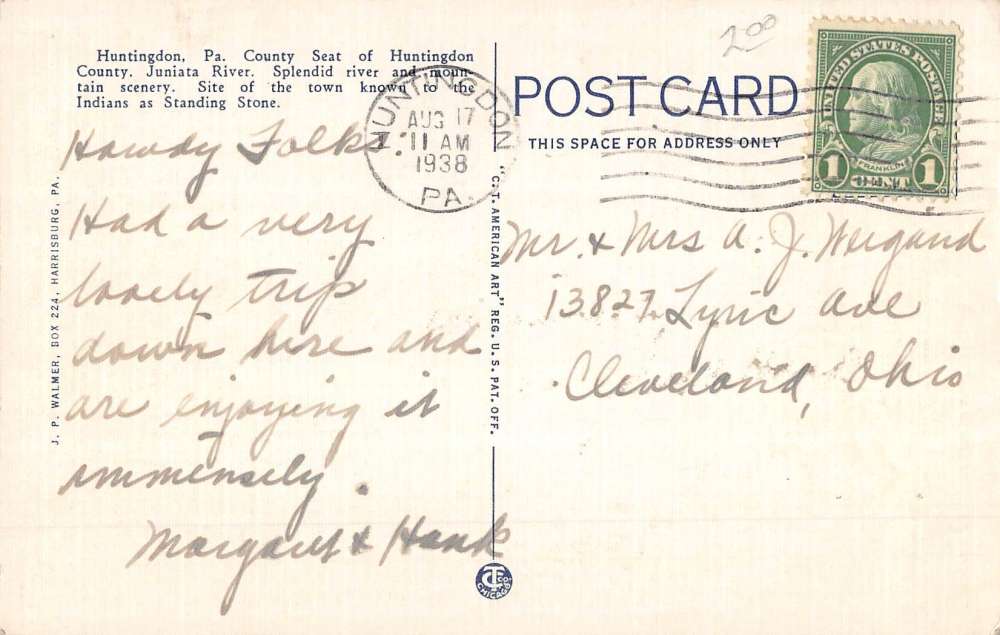 Huntingdon, Pa. County Seat of Huntingdon
County. Juniata River. Splendid river and moun-
tain scenery. Site of the town known to the
Indians as Standing Stone.
Howdy Folks:
Had a very
lovely trip
down here and
are enjoying it
immensely.
Margaret & Hank
J. P. WALMER, BOX 224, HARRISBURG, PA.
HUNTINGDON
AUG 17
11 AM
1938
PA.
"C.T. AMERICAN ART" REG. U.S. PAT. OFF.
2.00
POST CARD
THIS SPACE FOR ADDRESS ONLY
UNITED STATES POSTAGE
FRANKLIN
1 CENT 1
Mr. & Mrs A. J. Weigand
13827 Lyric Ave
Cleveland, Ohio
CT CO
CHICAGO